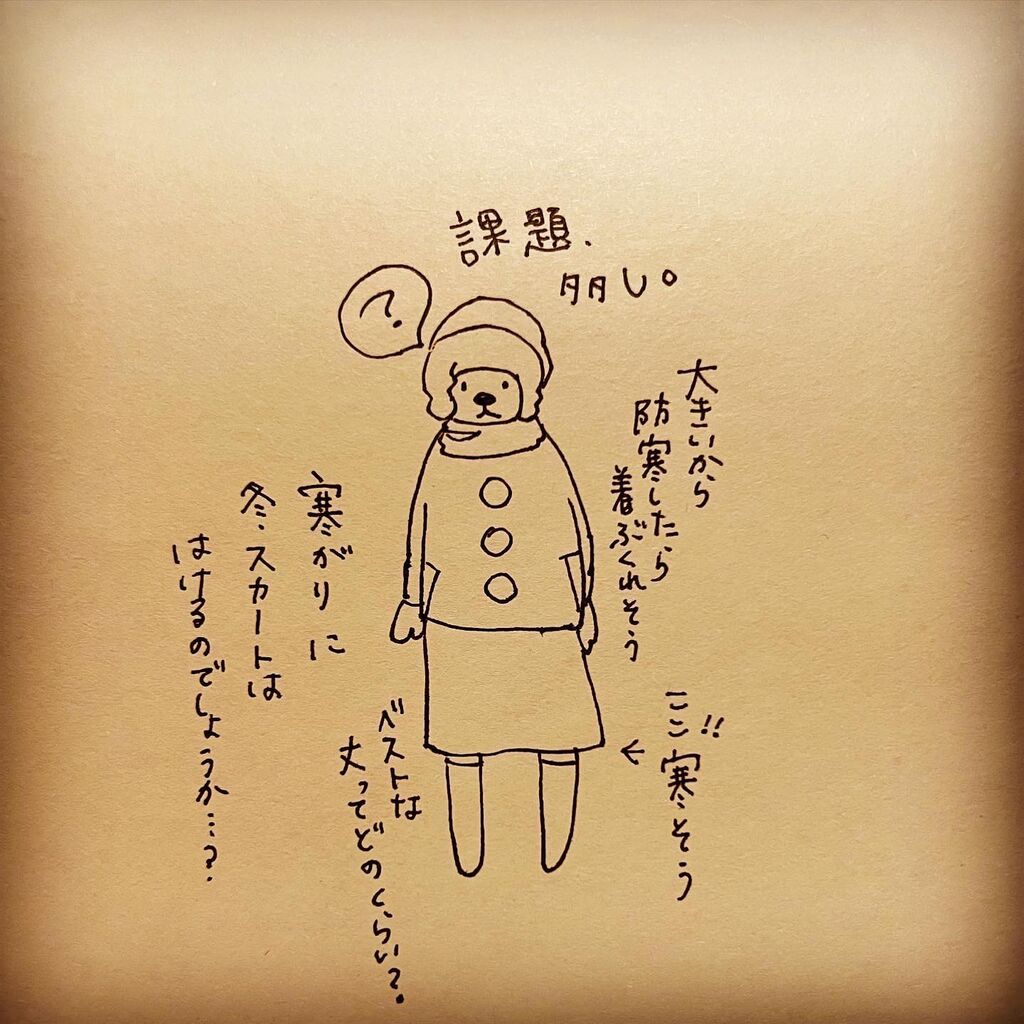 課題、
多し。
?
大きいから
防寒したら
着ぶくれそう
ここ!!
寒そう
←
寒がりに
冬、スカートは
はけるのでしょうか…?
ベストな
丈ってどのくらい?。